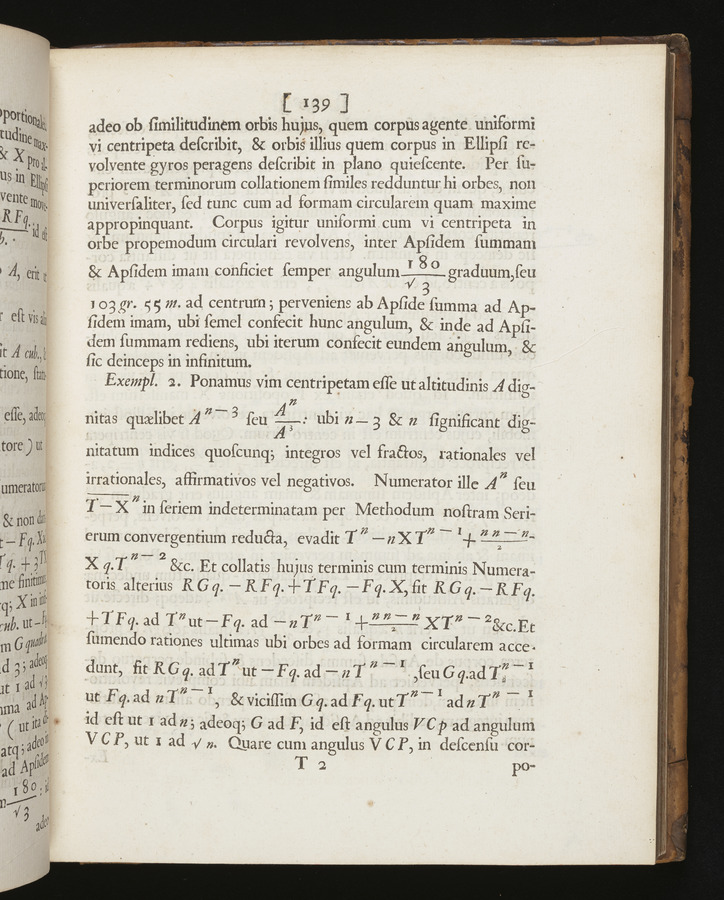 [ 139 ]
adeo ob ſimilitudinem orbis hujus, quem corpus agente uniformi
vi centripeta deſcribit, & orbis illius quem corpus in Ellipſi re-
volvente gyros peragens deſcribit in plano quieſcente. Per ſu-
periorem terminorum collationem ſimiles redduntur hi orbes, non
univerſaliter, ſed tunc cum ad formam circularem quam maxime
appropinquant. Corpus igitur uniformi cum vi centripeta in
orbe propemodum circulari revolvens, inter Apſidem ſummam
& Apſidem imam conficiet ſemper angulum 180/√3 graduum, ſeu
103 gr. 55 m. ad centrum; perveniens ab Apſide ſumma ad Ap-
ſidem imam, ubi ſemel confecit hunc angulum, & inde ad Apſi-
dem ſummam rediens, ubi iterum confecit eundem angulum, &
ſic deinceps in infinitum.
Exempl. 2. Ponamus vim centripetam eſſe ut altitudinis A dig-
nitas quælibet A^{n—3} ſeu A^n/A^3: ubi n—3 & n ſignificant dig-
nitatum indices quoſcunq; integros vel fractos, rationales vel
irrationales, affirmativos vel negativos. Numerator ille A^n ſeu
T—X^n in ſeriem indeterminatam per Methodum noſtram Seri-
erum convergentium reducta, evadit T^n—nXT^{n—1}+nn—n/2-
X q.T^{n—2} &c. Et collatis hujus terminis cum terminis Numera-
toris alterius RGq.—RFq.+TFq.—Fq.X, fit RGq.—RFq.
+TFq. ad T^n ut—Fq. ad —nT^{n—1}+nn—n/2 XT^{n—2} &c. Et
ſumendo rationes ultimas ubi orbes ad formam circularem acce-
dunt, fit RGq. ad T^n ut—Fq. ad—nT^{n—1}, ſeu Gq.ad T^{n—1}
ut Fq. ad nT^{n—1}, & viciſſim Gq. ad Fq. ut T^{n—1} ad nT^{n—1}
id eſt ut 1 ad n; adeoq; G ad F, id eſt angulus VCp ad angulum
VCP, ut 1 ad √n. Quare cum angulus VCP, in deſcenſu cor-
T 2
po-